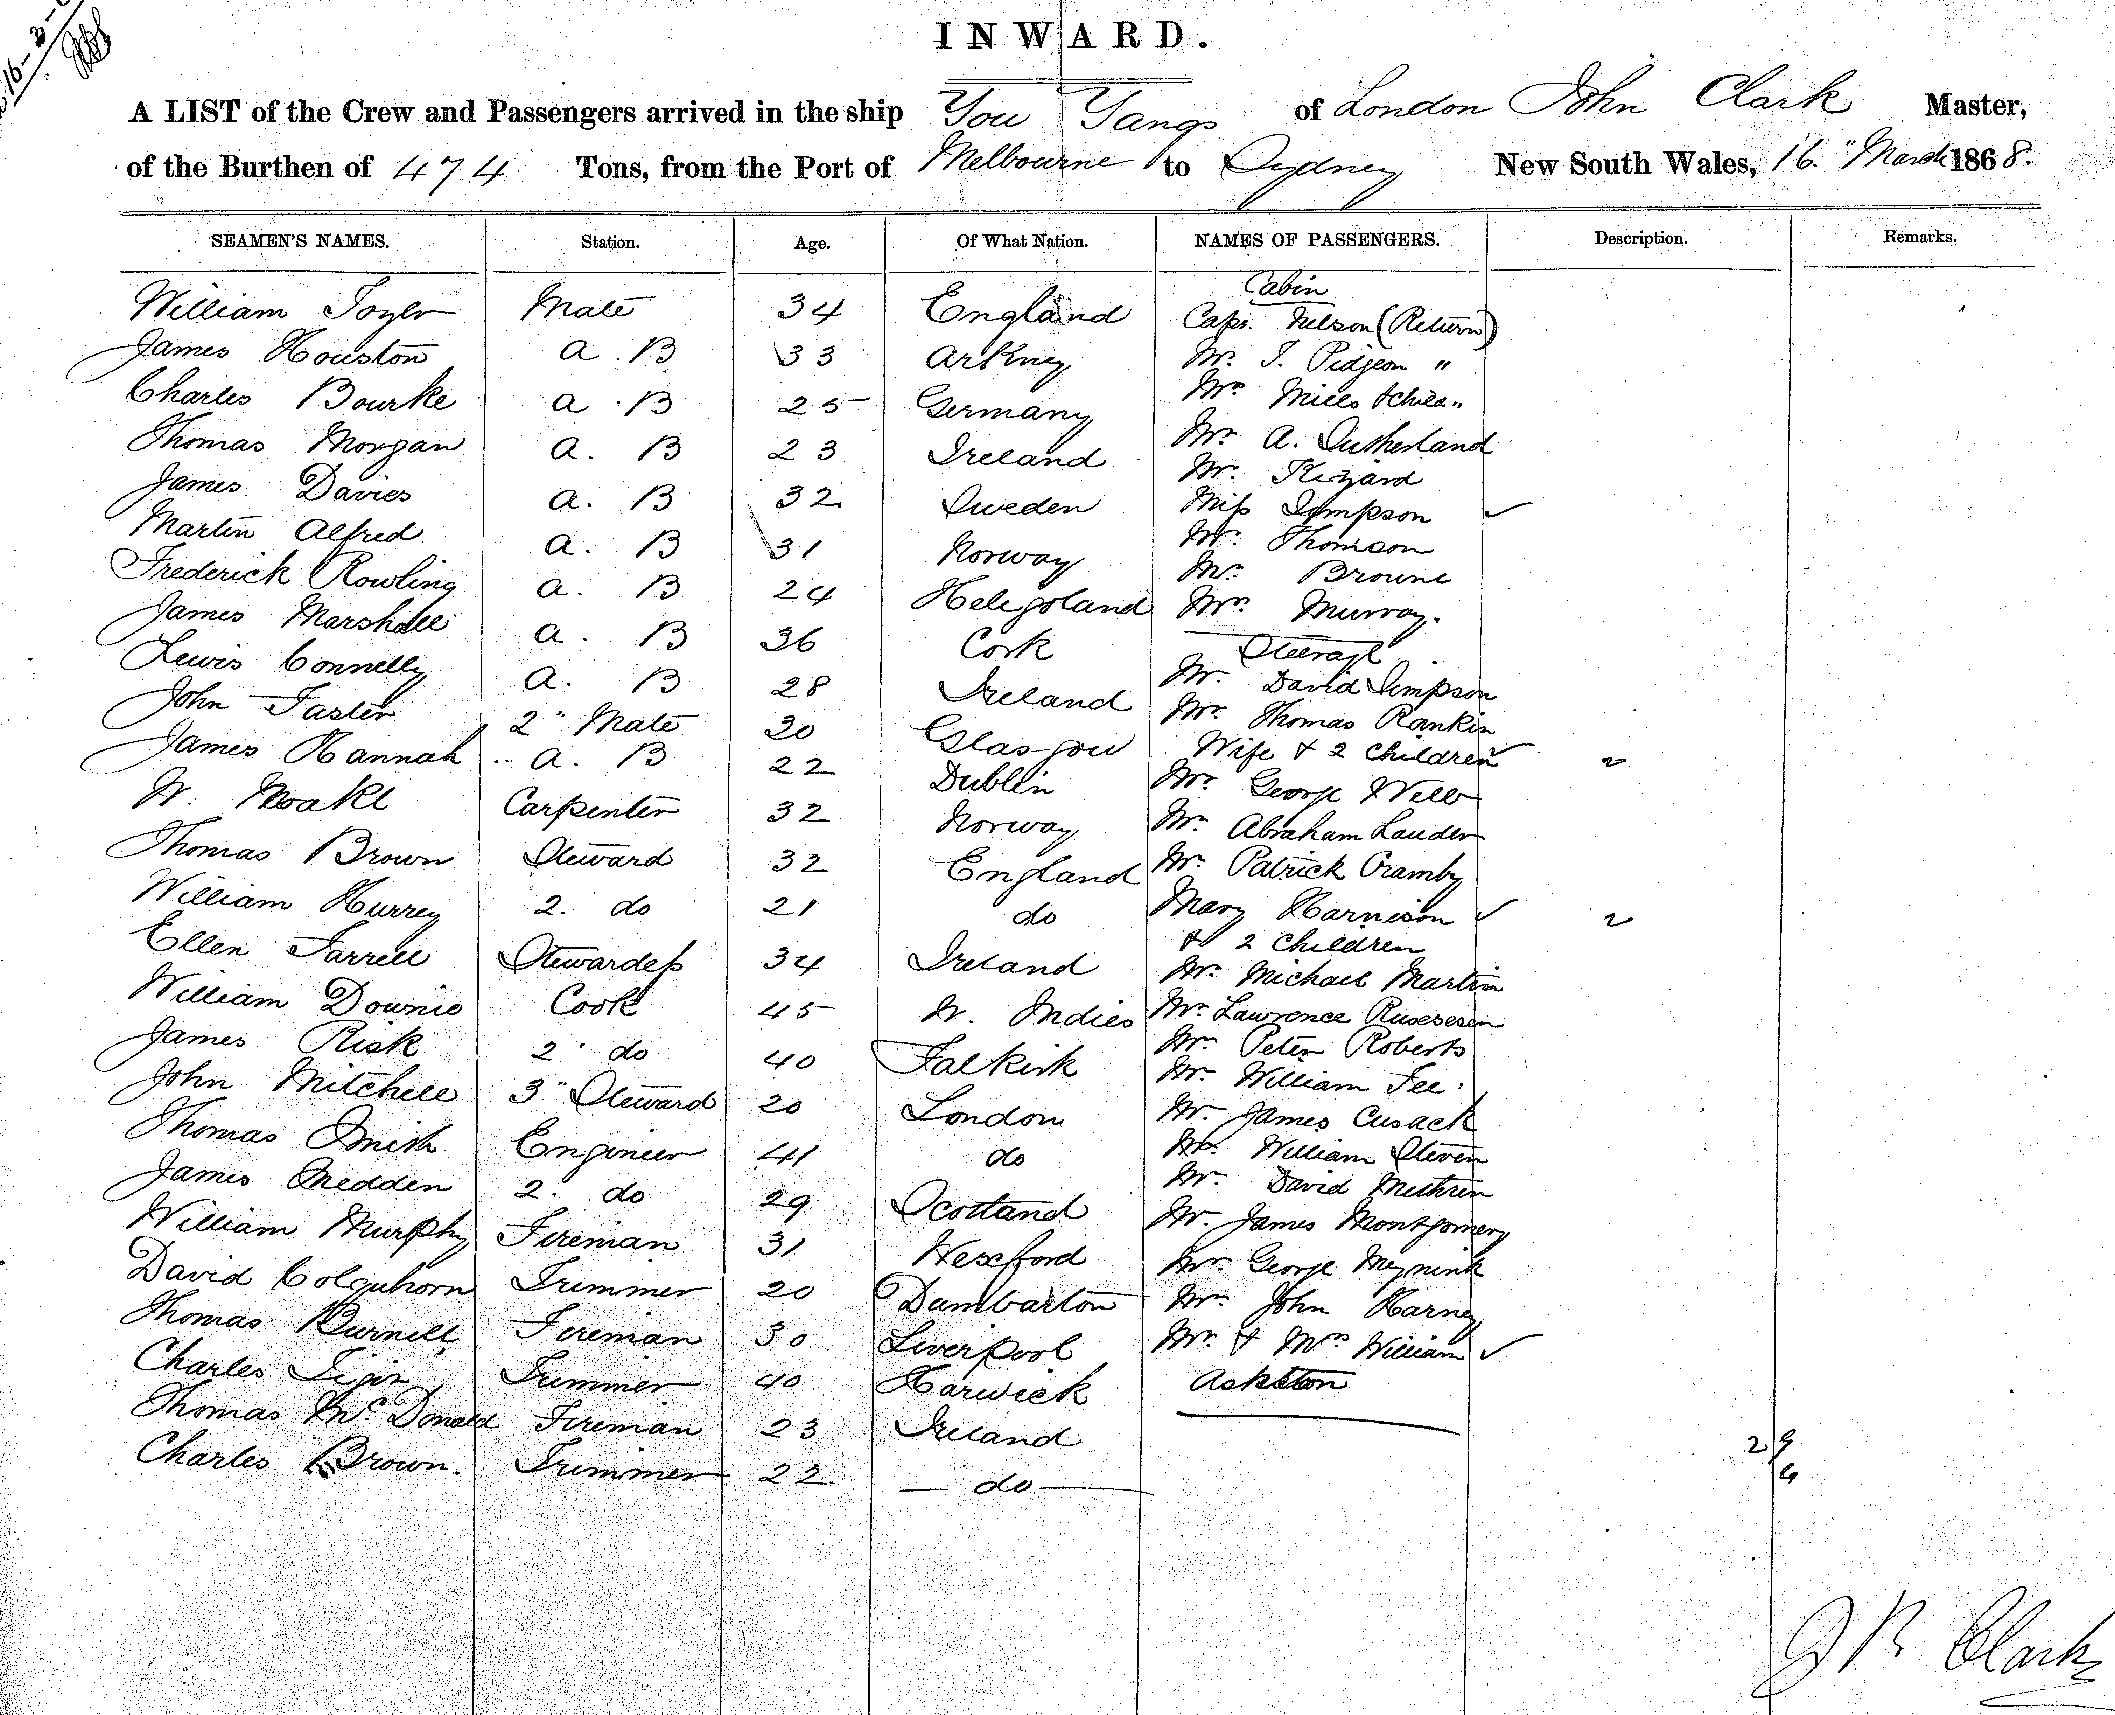 16-3-
INWARD.
A LIST of the Crew and Passengers arrived in the ship You Yangs of London John Clark Master,
of the Burthen of 474 Tons, from the Port of Melbourne to Sydney New South Wales, 16" March 1868.
SEAMEN'S NAMES. Station. Age. Of What Nation. NAMES OF PASSENGERS. Description. Remarks.
Cabin
William Mate 34 England Capt. Nelson (Return)
James Houston A. B 33 Arkney Mr. J. Pidgeon "
Charles Bourke A. B 25 Germany Mrs Miles & child "
Thomas Morgan A. B 23 Ireland Mr. A. Sutherland
James Davies A. B 32 Sweden Mr. Kizard
Miss Simpson
Martin Alfred A. B 31 Norway Mr. Thomson
Frederick Rowling A. B 24 Heligoland Mr. Browne
Mrs. Murray.
James Marshall A. B 36 Cork Steerage
Lewis Connelly A. B 28 Ireland Mr. David Simpson
John Faster 2" Mate 30 Glasgow Mr. Thomas Rankin
James Hannah A. B 22 Dublin Wife & 2 Children 2
W. Moakl Carpenter 32 Norway Mr. George Webb
Mr. Abraham Lauder
Thomas Brown Steward 32 England Mr. Patrick Cramby
William Hurrey 2. do 21 do Mary Harrison 2
& 2 Children
Ellen Farrell Stewardess 34 Ireland Mr. Michael Martin
William Downie Cook 45 W. Indies Mr. Lawrence
James Risk 2" do 40 Falkirk Mr. Peter Roberts
Mr. William Fee.
John Mitchell 3" Steward 20 London Mr. James Cusack
Thomas Smith Engineer 41 do Mr. William Steven
James Gredden 2. do 29 Scotland Mr. David Methven
Mr. James Montgomery
William Murphy Fireman 31 Wexford Mr. George Meynink
David Colquhorn Trimmer 20 Dumbarton Mr. John Harney
Thomas Burnell Fireman 30 Liverpool Mr. & Mrs William
Charles Trimmer 40 Harwick Ashton
Thomas McDonald Fireman 23 Ireland
29
6
Charles Brown. Trimmer 22 do
J R Clark